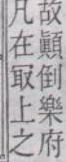 故顚倒樂府
凡在取上之